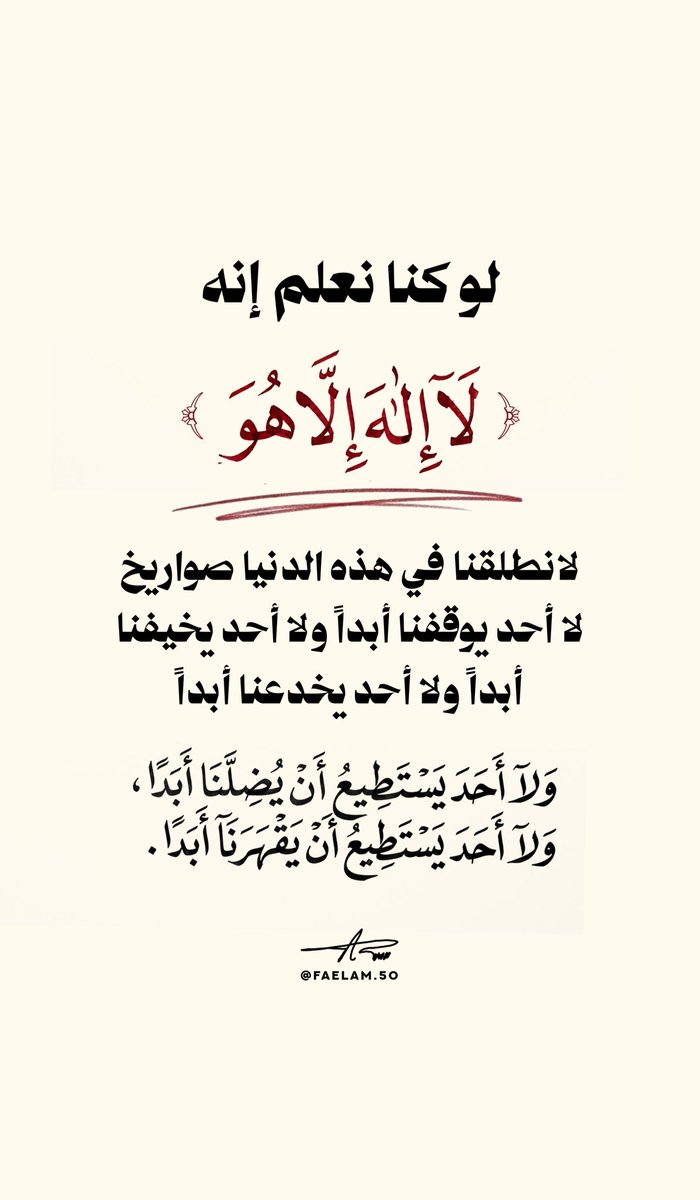 لو كنا نعلم إنه
﴿لَآ إِلَٰهَ إِلَّا هُوَ﴾
لانطلقنا في هذه الدنيا صواريخ
لا أحد يوقفنا أبداً ولا أحد يخيفنا
أبداً ولا أحد يخدعنا أبداً
وَلَآ أَحَدَ يَسْتَطِيعُ أَنْ يُضِلَّنَا أَبَدًا،
وَلَآ أَحَدَ يَسْتَطِيعُ أَنْ يَقْهَرَنَآ أَبَدًا.
@FAELAM.50